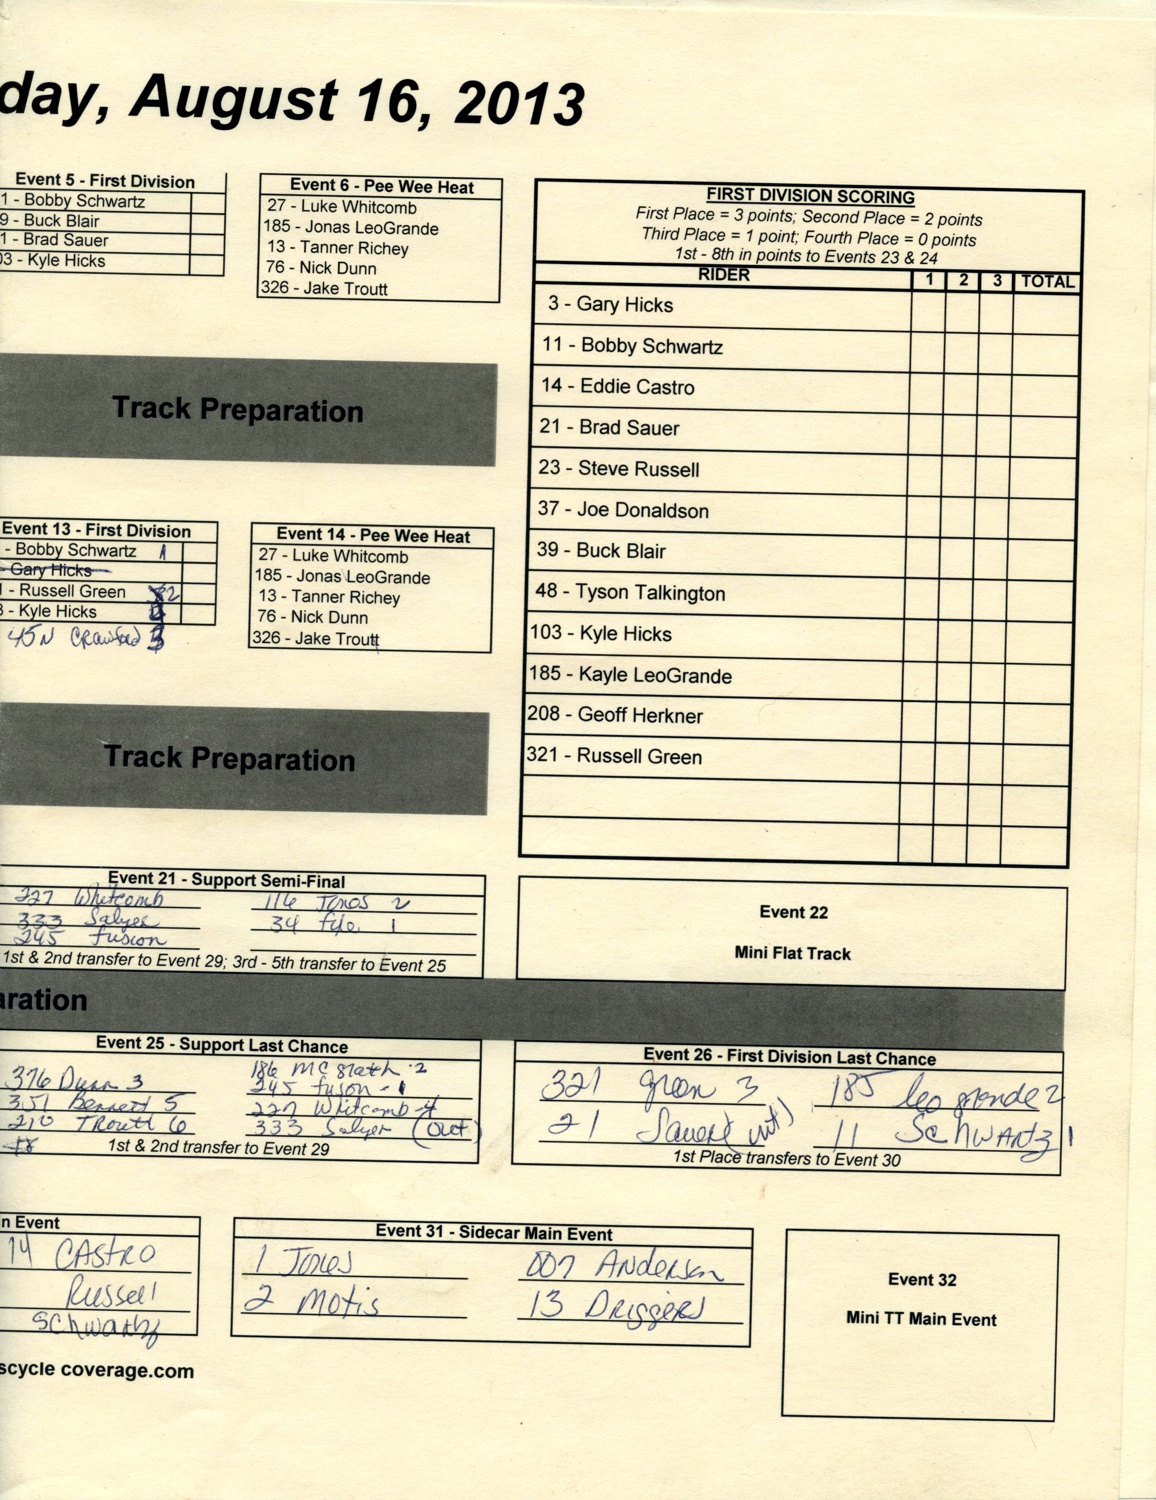 day, August 16, 2013
Event 5 - First Division
1 - Bobby Schwartz
9 - Buck Blair
1 - Brad Sauer
03 - Kyle Hicks
Event 6 - Pee Wee Heat
27 - Luke Whitcomb
185 - Jonas LeoGrande
13 - Tanner Richey
76 - Nick Dunn
326 - Jake Troutt
FIRST DIVISION SCORING
First Place = 3 points; Second Place = 2 points
Third Place = 1 point; Fourth Place = 0 points
1st - 8th in points to Events 23 & 24
RIDER 1 2 3 TOTAL
3 - Gary Hicks
11 - Bobby Schwartz
14 - Eddie Castro
21 - Brad Sauer
23 - Steve Russell
37 - Joe Donaldson
39 - Buck Blair
48 - Tyson Talkington
103 - Kyle Hicks
185 - Kayle LeoGrande
208 - Geoff Herkner
321 - Russell Green
Track Preparation
Event 13 - First Division
- Bobby Schwartz 1
- Gary Hicks
1 - Russell Green 2
3 - Kyle Hicks
45N Crawford 3
Event 14 - Pee Wee Heat
27 - Luke Whitcomb
185 - Jonas LeoGrande
13 - Tanner Richey
76 - Nick Dunn
326 - Jake Troutt
Track Preparation
Event 21 - Support Semi-Final
227 Whitcomb 116 Jones 2
333 Salyer 34 fife 1
245 fusion
1st & 2nd transfer to Event 29; 3rd - 5th transfer to Event 25
Event 22
Mini Flat Track
aration
Event 25 - Support Last Chance
376 Dunn 3 186 McGrath 2
351 Bennett 5 245 fusion - 1
210 Troutt 6 227 Whitcomb 4
333 Salyer (out)
1st & 2nd transfer to Event 29
Event 26 - First Division Last Chance
321 green 3 185 leo grande 2
21 Sauer 11 Schwartz 1
1st Place transfers to Event 30
n Event
14 CASTRO
Russell
Schwartz
Event 31 - Sidecar Main Event
1 Jones 007 Anderson
2 Motis 13 Driggers
Event 32
Mini TT Main Event
scycle coverage.com